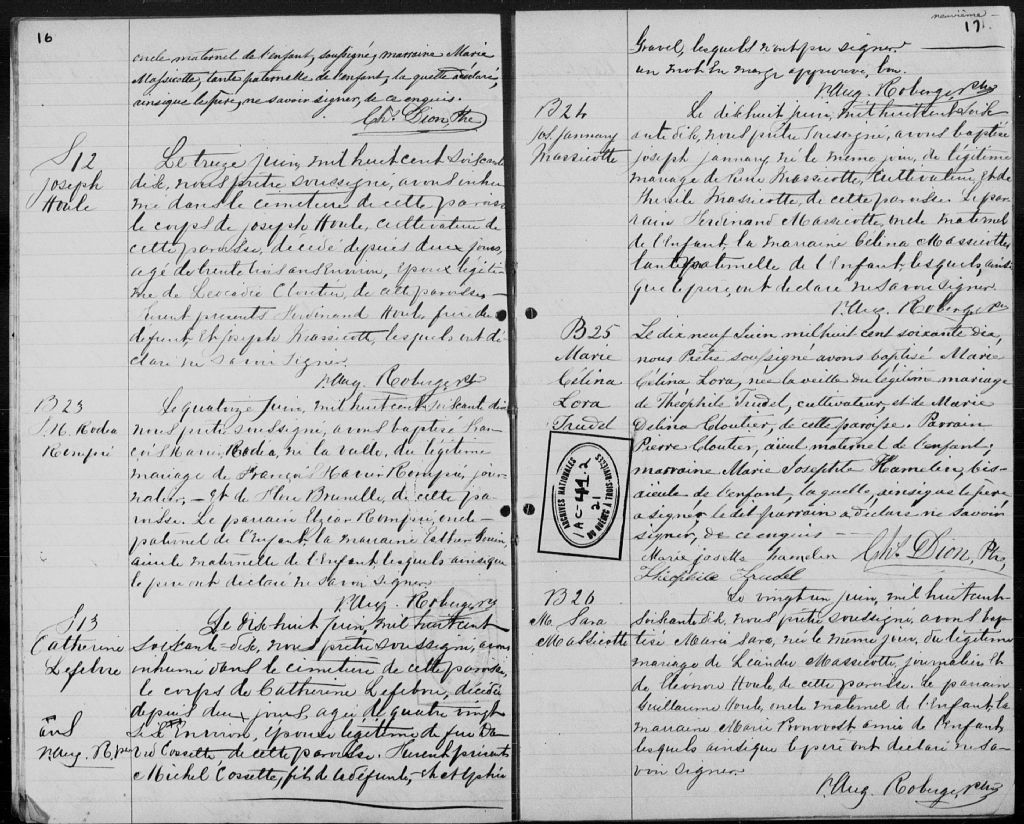 16
oncle maternel de l'enfant, soussigné, marraine Marie
Massicotte, tante paternelle de l'enfant, la quelle a déclaré,
ainsi que le père, ne savoir signer, de ce enquis.
Chs Dion, Ptre
S 12
Joseph
Houle
Le treize juin, mil huit cent soixante
dix, nous prêtre soussigné, avons inhu
mé dans le cimetière de cette paroisse
le corps de Joseph Houle, cultivateur de
cette paroisse, décédé depuis deux jours,
agé de trente trois ans environ, époux légiti
me de Léocadie Cloutier, de cette paroisse.
Furent présents Ferdinand Houle, frère du
défunt et Joseph Massicotte, lesquels ont dé
claré ne savoir signer.
P. Aug. Roberge, Ptre
B 23
F. X. Rodia
Rompré
Le quatorze juin, mil huit cent soixante dix
nous prêtre soussigné, avons baptisé Fran
çois Xavier, Rodia, né la veille, du légitime
mariage de François Xavier Rompré, jour
nalier, et de Brunelle, de cette pa
roisse. Le parrain Elzéar Rompré, oncle
paternel de l'enfant, la marraine Esther
tante maternelle de l'enfant, lesquels ainsi que
le père ont déclaré ne savoir signer
P. Aug. Roberge, Ptre
S 13
Catherine
Lefebvre
ans
P. Aug. R. Ptre
Le dix huit juin, mil huit cent
soixante-dix, nous prêtre soussigné, avons
inhumé dans le cimetière de cette paroisse,
le corps de Catherine Lefebvre, décédée
depuis deux jours, agée de quatre vingt
six environ, épouse légitime de feu Da
vid Cossette de cette paroisse. Furent présents
Michel Cossette, fils de la défunte, et Alphée
neuvième
17
Gravel, lesquels n'ont pu signer
un mot en marge approuvé, bon.
P. Aug. Roberge, Ptre
B 24
Jos. Jannary
Massicotte
Le dix huit juin, mil huit cent soix
ante dix, nous prêtre soussigné, avons baptisé
Joseph Jannary né le même jour, du légitime
mariage de Massicotte, cultivateur, et de
Massicotte, de cette paroisse. Le par
rain Ferdinand Massicotte, oncle maternel
de l'enfant, la marraine Célina Massicotte
tante paternelle de l'enfant, lesquels, ainsi
que le père, ont déclaré ne savoir signer
P. Aug. Roberge, Ptre
B 25
Marie
Célina
Lora
Trudel
Le dix neuf Juin mil huit cent soixante dix,
nous Prêtre soussigné avons baptisé Marie
Célina Lora, née la veille du légitime mariage
de Théophile Trudel, cultivateur, et de Marie
Delina Cloutier, de cette paroisse. Parrain
Pierre Cloutier, aieul maternel de l'enfant;
marraine Marie Josephte Hamelin, bis-
aieule de l'enfant, laquelle, ainsi que le père
a signé, le dit parrain a déclaré ne savoir
signer, de ce enquis
Marie josette hamelin Chs Dion, Ptre,
Théophile Trudel
ARCHIVES NATIONALES
1AC-41.2
21
DU QUÉBEC À TROIS-RIVIÈRES
B 26
M. Sara
Massicotte
Le vingt un juin, mil huit cent
soixante dix, nous prêtre soussigné, avons bap
tisé Marie Sara, née le même jour, du légitime
mariage de Léandre Massicotte, journalier et
de Eléonore Houle, de cette paroisse. Le parrain
Guillaume Houle, oncle maternel de l'enfant, la
marraine Marie Pronovost amie de l'enfant,
lesquels ainsi que le père ont déclaré ne sa
voir signer
P. Aug. Roberge, Ptre